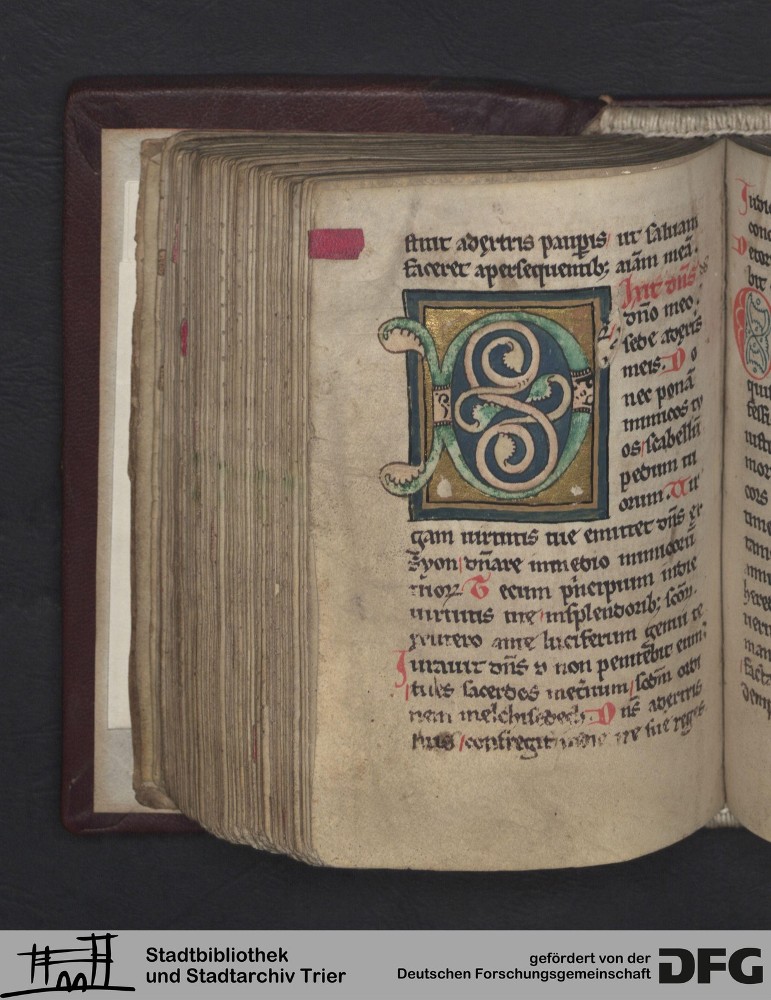 stitit adextris paupis ut saluam
faceret apersequentib; aiam meā.
D
Ixit dn̄s
dn̄o meo.
sede adextris
meis. D o
nec ponā
inimicos tu
os scabellū
pedum tu
orum. Uir
gam uirtutis tue emittet dn̄s ex
syon dn̄are inmedio inimicorū
tuoꝝ. T ecum pͥncipium indie
uirtutis tue insplendorib; scōꝝ.
exutero ante luciferum genui te
Iurauit dn̄s & non penitebit eum.
tu es sacerdos ineternum scdm ordi
nem melchisedech. D n̄s adextris
tuis confregit in die ire sue reges
Stadtbibliothek
und Stadtarchiv Trier
gefördert von der
Deutschen Forschungsgemeinschaft
DFG